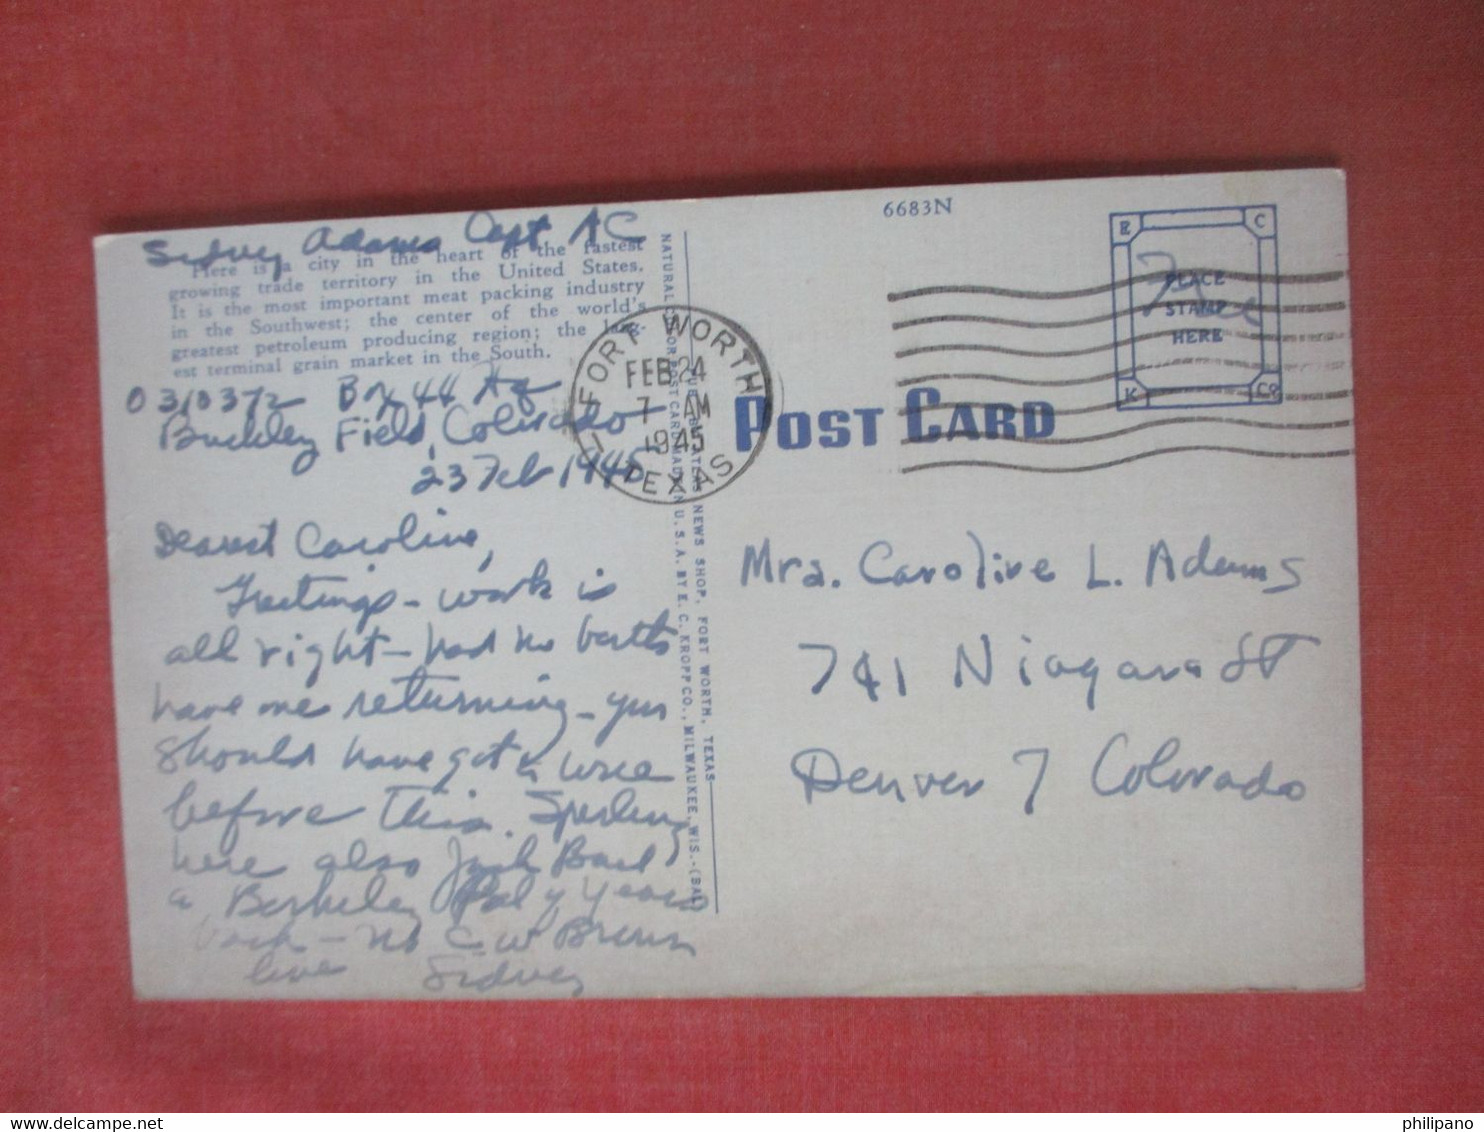 Sidney Adams Capt AC
Here is a city in the heart of the fastest
growing trade territory in the United States.
It is the most important meat packing industry
in the Southwest; the center of the world's
greatest petroleum producing region; the larg-
est terminal grain market in the South.
Box 44
Buckley Field, Colorado
23 Feb 1945
Dearest Caroline,
Greetings - work is
all right - had no
have me returning - you
should have got a wire
before this.
here also Jack
a Berkeley Pal of years
back - no C.W. Brown
love Sidney
NATURAL COLOR POST CARD MADE IN U. S. A. BY E. C. KROPP CO., MILWAUKEE, WIS.-(BAL)
NEWS SHOP, FORT WORTH, TEXAS
FORT WORTH
FEB 24
7 AM
1945
TEXAS
6683N
E C
PLACE
STAMP
HERE
K Co
Free
POST CARD
Mrs. Caroline L. Adams
741 Niagara St
Denver 7 Colorado
philipano